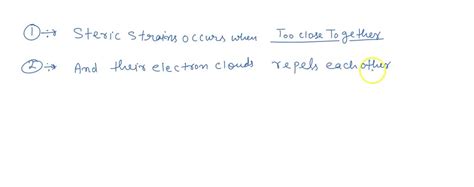 ① → Steric Strains occurs when Too close Together
② → And their electron clouds repels each other